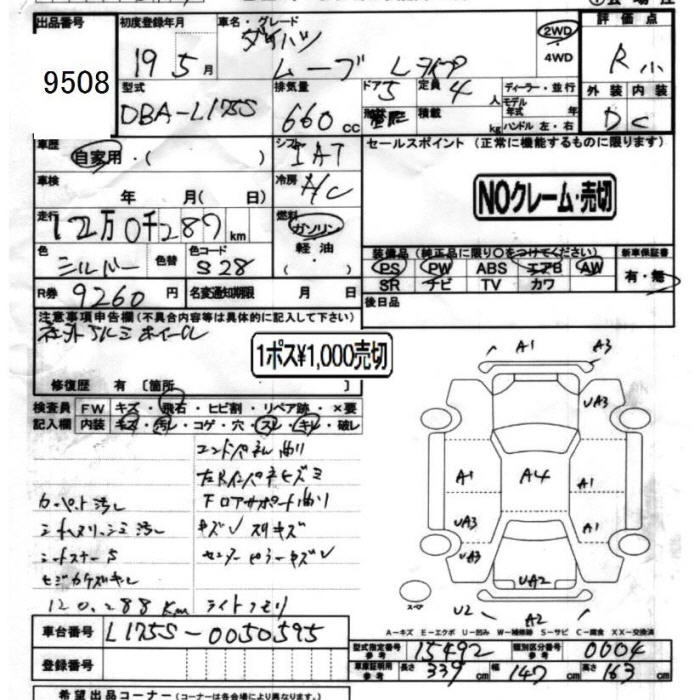 出品番号 初度登録年月 車名・グレード 2WD 評価点
9508 19 5月 ダイハツ ムーブ L 4WD R
型式 排気量 ドア 定員 ディーラー・並行 外装 内装
DBA-L175S 660cc 5 4人 モデル年式 年 D C
積載 kg ハンドル 左・右
車歴 自家用・( ) シフト IAT セールスポイント (正常に機能するものに限ります)
車検 年 月( 日) 冷房 A/C NOクレーム・売切
走行 12万0千287km 燃料 ガソリン・軽油・( )
装備品 (純正品に限り○をつけてください) 新車保証書
色 シルバー 色替 色コード S28 PS PW ABS エアB AW 有・無
SR ナビ TV カワ
R券 9260円 名変通知期限 月 日 後日品
注意事項申告欄 (不具合内容等は具体的に記入して下さい)
社外アルミホイール
1ポス¥1,000売切
修復歴 有 [箇所
検査員 FW キズ・飛石・ヒビ割・リペア跡・×要
記入欄 内装 キズ・汚れ・コゲ・穴・スレ・キレ・破レ
エンドパネル曲り
フロアサポート曲り
カーペット汚れ
キズU スリキズ
120,288Km ライトクモリ
A1 A3
UA3
A1 A4 A1
UA3 A1
UA3
UA2
U2 A2
スペア
A-キズ E-エクボ U-凹み W-補修跡 S-サビ C-腐食 XX-交換済
車台番号 L175S-0050595
型式指定番号 参考 15492 類別区分番号 参考 0004
登録番号 車庫証明用 参考 長さ 339cm 幅 147cm 高さ 163cm
希望出品コーナー (コーナーは各会場により異なります。)